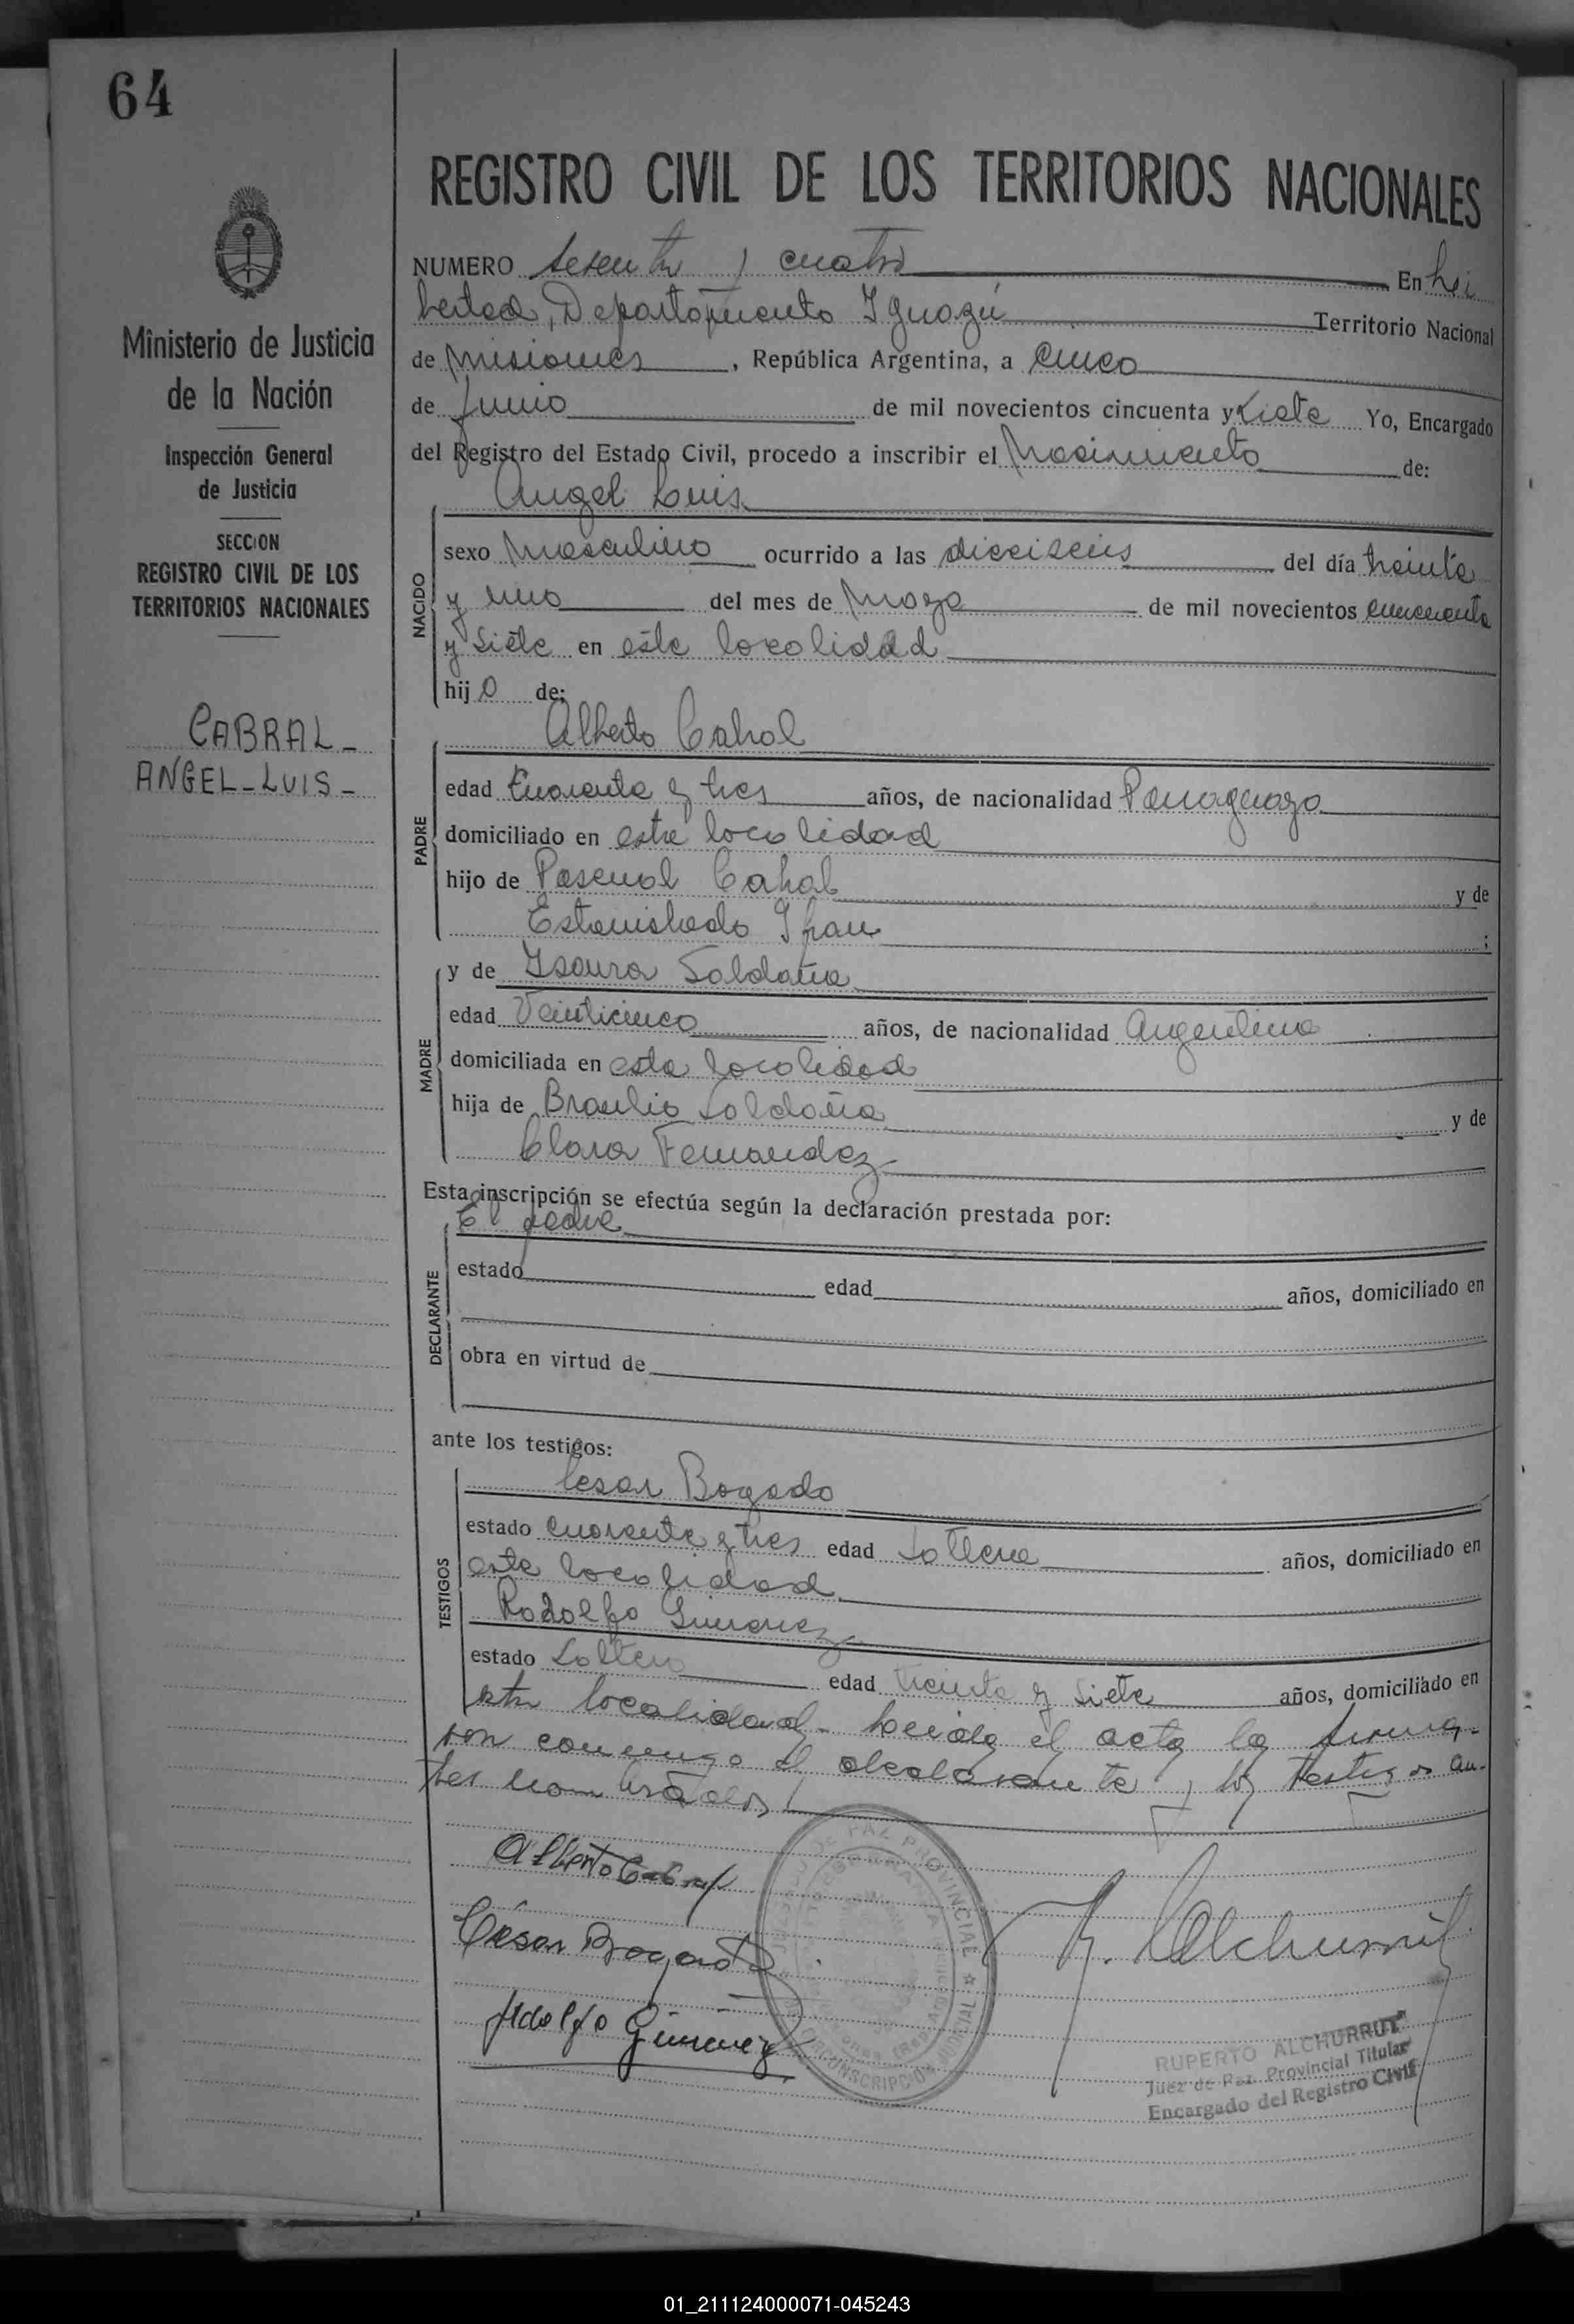 64
REGISTRO CIVIL DE LOS TERRITORIOS NACIONALES
Ministerio de Justicia
de la Nación
Inspección General
de Justicia
SECCION
REGISTRO CIVIL DE LOS
TERRITORIOS NACIONALES
CABRAL -
ANGEL - LUIS -
NUMERO sesenta y cuatro En Li
bertad, Departamento Iguazú Territorio Nacional
de Misiones, República Argentina, a cinco
de Junio de mil novecientos cincuenta y siete Yo, Encargado
del Registro del Estado Civil, procedo a inscribir el Nacimiento de:
Angel Luis
NACIDO
sexo Masculino ocurrido a las dieciseis del día treinta
y uno del mes de Mayo de mil novecientos cincuenta
y siete en esta localidad
hijo de:
Alberto Cabral
PADRE
edad Cuarenta y tres años, de nacionalidad Paraguaya
domiciliado en esta localidad
hijo de Pascual Cabral y de
Estanislada ;
y de Isaura Saldaña
MADRE
edad Veinticinco años, de nacionalidad Argentina
domiciliada en esta localidad
hija de Brasilio Saldaña y de
Clara Fernandez
Esta inscripción se efectúa según la declaración prestada por:
El padre
DECLARANTE
estado edad años, domiciliado en
obra en virtud de
ante los testigos:
Cesar Bogado
TESTIGOS
estado cuarenta y tres edad Soltero años, domiciliado en
esta localidad
Rodolfo Gimenez
estado Soltero edad treinta y siete años, domiciliado en
esta localidad - Leida el acta la firma-
ron conmigo el declarante y los testigos an-
tes nombrados
Alberto Cabral
César Bogado
Adolfo Gimenez
R. Alchurrut
PAZ PROVINCIAL
CIRCUNSCRIPCION JUDICIAL
RUPERTO ALCHURRUT
Juez de Paz Provincial Titular
Encargado del Registro Civil
01_211124000071-045243